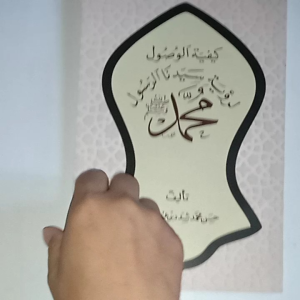 كيفية الوصول
لرؤية سيدنا الرسول
محمد ﷺ
تأليف